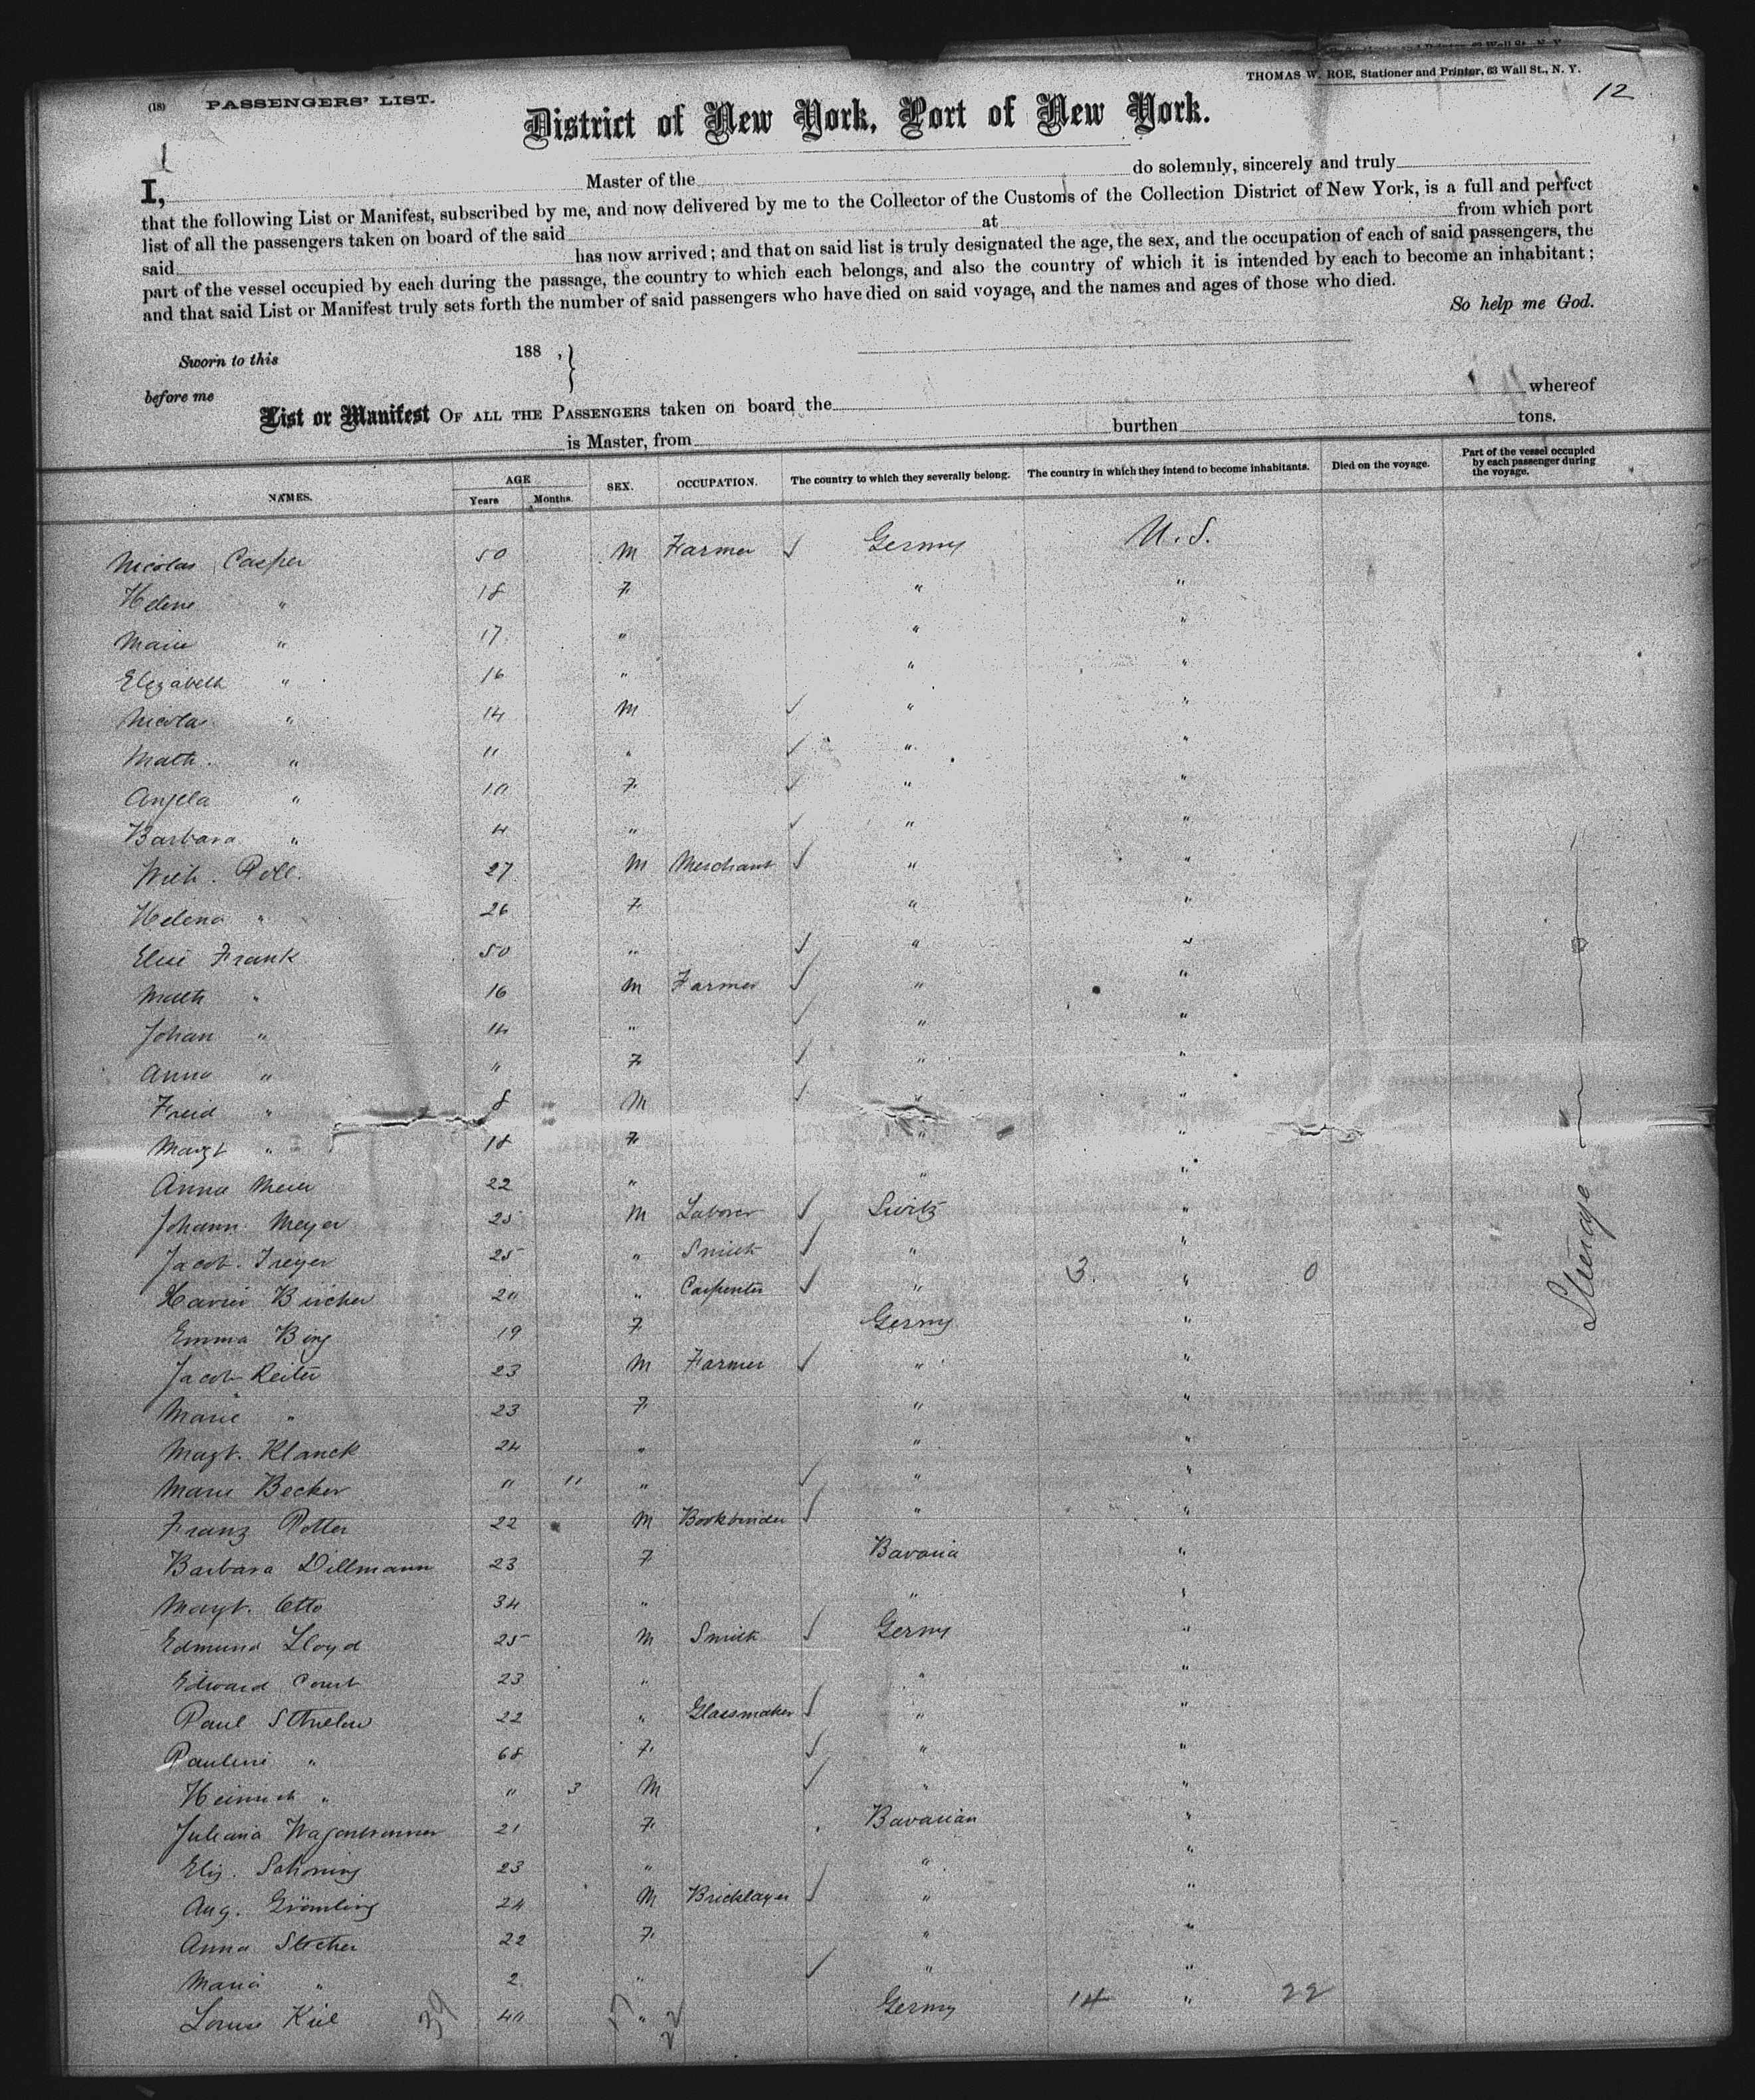 THOMAS W. ROE, Stationer and Printer, 63 Wall St., N. Y.
12
(18) PASSENGERS' LIST.
District of New York, Port of New York.
I, Master of the do solemnly, sincerely and truly
that the following List or Manifest, subscribed by me, and now delivered by me to the Collector of the Customs of the Collection District of New York, is a full and perfect
list of all the passengers taken on board of the said at from which port
said has now arrived; and that on said list is truly designated the age, the sex, and the occupation of each of said passengers, the
part of the vessel occupied by each during the passage, the country to which each belongs, and also the country of which it is intended by each to become an inhabitant;
and that said List or Manifest truly sets forth the number of said passengers who have died on said voyage, and the names and ages of those who died.
So help me God.
Sworn to this 188 , }
before me
List or Manifest OF ALL THE PASSENGERS taken on board the whereof
is Master, from burthen tons.
NAMES. AGE Years Months. SEX. OCCUPATION. The country to which they severally belong. The country in which they intend to become inhabitants. Died on the voyage. Part of the vessel occupied by each passenger during the voyage.
Nicolas Casper 50 M Farmer Germy U.S.
Helene " 18 F " "
Marie " 17 " " "
Elizabeth " 16 " " "
Nicolas " 14 M " "
Math. " 11 " " "
Angela " 10 F " "
Barbara " 4 " " "
Wilh. Poll. 27 M Merchant " "
Helena " 26 F " "
Elise Frank 50 " " "
Math " 16 M Farmer " "
Johan " 14 " " "
Anna " " F " "
Freid " 8 M " "
Margt " 18 F " "
Anna Meier 22 " " "
Johann Meyer 25 M Laborer Switz "
Jacob 25 " Smith " "
Xavier Bircher 20 " Carpenter " 3. " 0
Emma Bing 19 F Germy "
Jacob Reiter 23 M Farmer " "
Marie " 23 F " "
Magt. Klanck 24 " " "
Marie Becker " 11 " " "
Franz Potter 22 M Bookbinder " "
Barbara Dillmann 23 F Bavaria "
Margt. Otto 34 " " "
Edmund Lloyd 25 M Smith Germy "
Edward Court 23 " " "
Paul 22 " Glassmaker " "
Pauline " 68 F " "
Heinrich " " 3 M " "
Juliana Wagenbrenner 21 F Bavarian "
Eliz. Schoning 23 " " "
Aug. Grömling 24 M Bricklayer " "
Anna Stecher 22 F " "
Maria " 2 " " "
Louise Kiel 39 40 17 " 22 Germy 14 " 22
Steerage